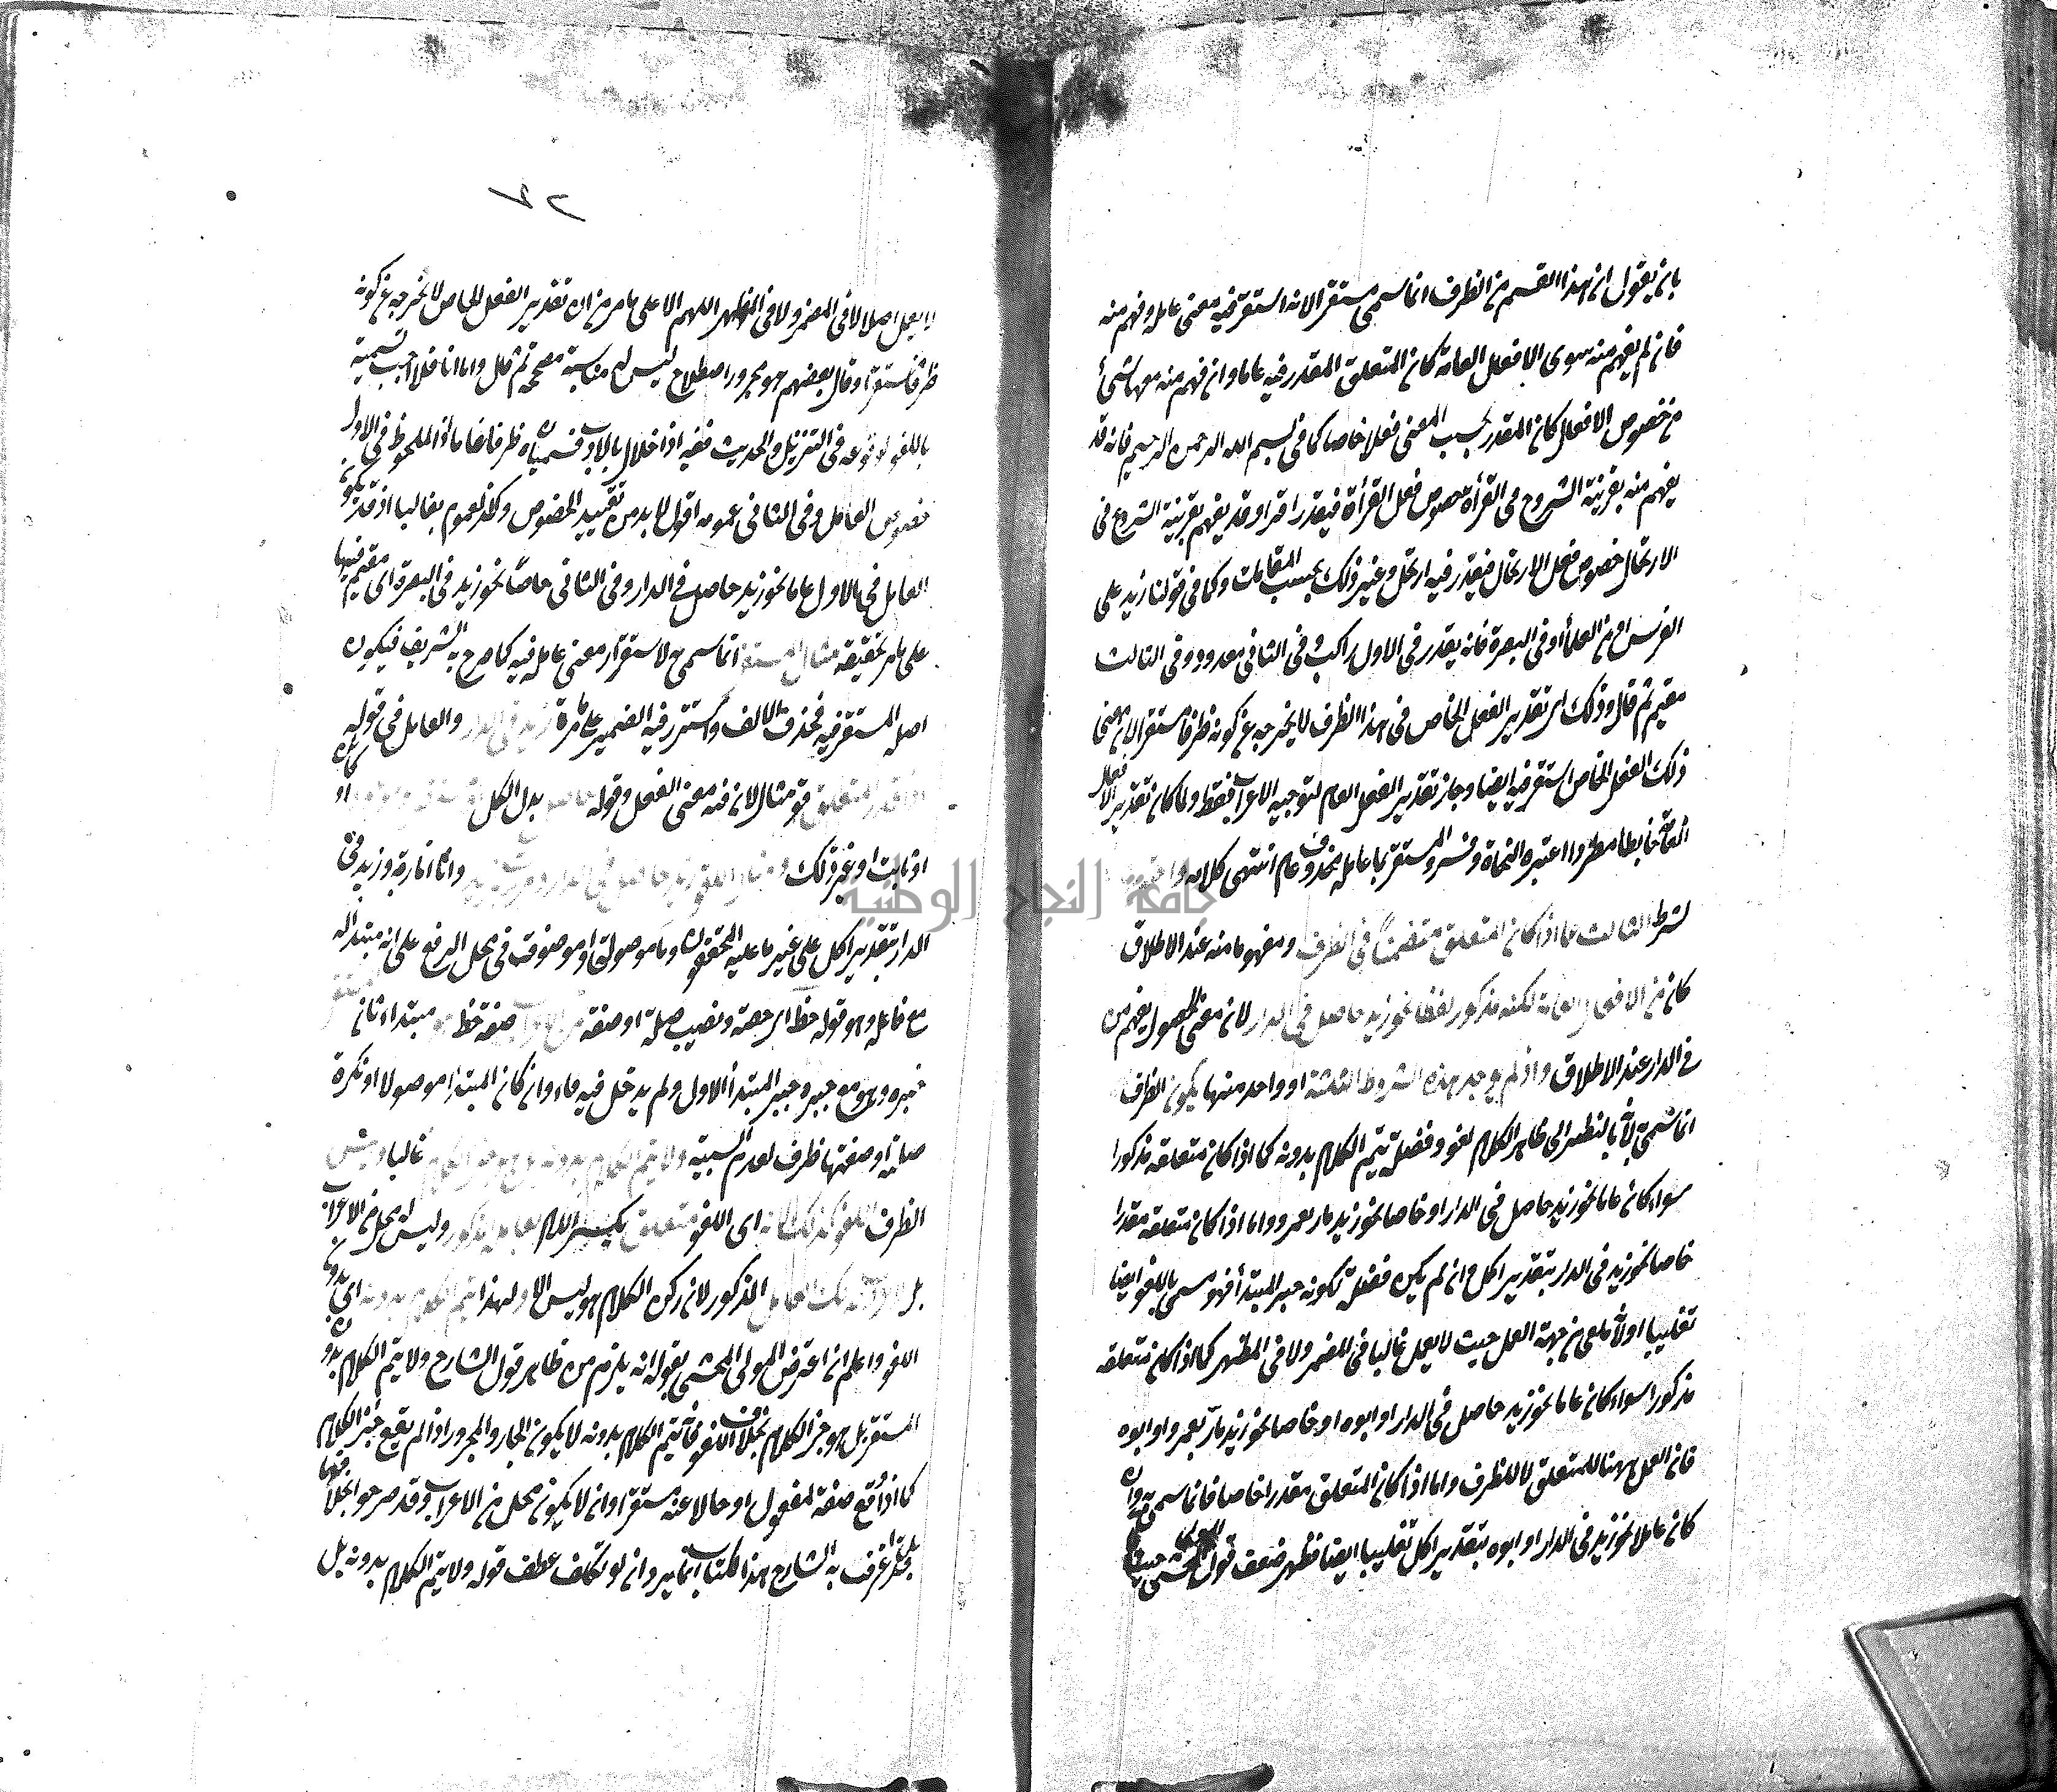 بان يقول ان هذا القسم من الظرف انما سمى مستقرا لانه استقر فيه معنى عامله وفهم منه
فان لم يفهم منه سوى الافعال العامة كان المتعلق المقدر فيه عاما وان فهم منه معها شئ
من خصوص الافعال كان المقدر بحسب المعنى فعلا خاصا كما فى بسم الله الرحمن الرحيم فانه قد
يفهم منه بقرينة الشروع فى القرأة خصوص فعل القرأة فيقدر اقرا وقد يفهم بقرينة الشروع فى
الارتحال خصوص فعل الارتحال فيقدر فيه ارتحل وغير ذلك بحسب المقامات وكما فى قولنا زيد على
الفرس او من العلمأ او فى البصرة فانه يقدر فى الاول راكب وفى الثانى معدود وفى الثالث
مقيم ثم قال وذلك اى تقدير الفعل الخاص فى هذا الظرف لا يخرجه عن كونه ظرفا مستقرا لان معنى
ذلك الفعل الخاص استقر فيه ايضا وجاز تقدير الفعل العام لتوجيه الاعراب فقط ولما كان تقدير الافعال
العامة ضابطا مطردا اعتبره النحاة وفسروا المستقر بما عامله محذوف عام انتهى كلامه
لشرط الثالث عما اذا كان المتعلق متضمنا فى الظرف ومفهوما منه عند الاطلاق
كان من الافعال العامة لكنه مذكور لفظا نحو زيد حاصل فى الدار لان معنى الحصول يفهم من
فى الدار عند الاطلاق واذ لم يوجد هذه الشروط الثلثة او واحد منها يكون الظرف
انما سمى به لانه بالنظر الى ظاهر الكلام لغو وفضلة يتم الكلام بدونه كما اذا كان متعلقه مذكورا
سواء كان عاما نحو زيد حاصل فى الدار او خاصا نحو زيد مار بعمرو واما اذا كان متعلقه مقدرا
خاصا نحو زيد فى الدار بتقدير اكل وان لم يكن فضلة لكونه خبر المبتدأ فهو مسمى باللغو ايضا
تغليبا اولانه ملغى من جهة العمل حيث لا يعمل غالبا فى المضمر ولا فى المظهر كما اذا كان متعلقه
مذكورا سواء كان عاما نحو زيد حاصل فى الدار او ابوه او خاصا نحو زيد مار بعمرو او ابوه
فان العمل ههنا للمتعلق لا للظرف واما اذا كان المتعلق مقدرا خاصا فانما سمى به وان
كان عاملا نحو زيد فى الدار او ابوه بتقدير اكل تغليبا ايضا فظهر ضعف قول المحشى حيث
٧٢
لا يعمل اصلا لا فى المضمر ولا فى المظهر اللهم الا على ما مر من ان تقدير الفعل الخاص لا يخرجه عن كونه
ظرفا مستقرا وقال بعضهم هو مجرور اصطلاح ليس له مناسبة مصححة ثم قال واما انا فلا احب تسمية
باللغو لوقوعه فى التنزيل والحديث ففيه اذا اخلال بالادب فسميناه ظرفا خاصا اذ الملحوظ فى الاول
خصوص العامل وفى الثانى عمومه اقول لا بد من تقييد الخصوص وكذا العموم بغالبا اذ قد يكون
العامل فى الاول عاما نحو زيد حاصل فى الدار وفى الثانى خاصا نحو زيد فى البصرة اى مقيم فيها
على ما مر تحقيقه مثال المستقر انما سمى به لاستقرار معنى عامله فيه كما صرح به الشريف فيكون
اصله المستقر فيه فحذف الالف واستتر فيه الضمير على ما مر زيد فى الدار والعامل فى قوله
متعلق قوله مثال لان فيه معنى الفعل وقوله بدل الكل
او ثابت او غير ذلك واما اضاربه وزيد فى
الدار بتقدير اكل على غير ما عليه المحققون وما موصولة او موصوفة فى محل الرفع على انه مبتدا له
مع فاعله وهو قوله حظ اى حصة ونصيب صلة او صفة صفة حظ مبتداء ثانى
خبره وهو مع خبره خبر المبتدأ الاول ولم يدخل فيه فاء وان كان المبتدأ موصولا او نكرة
صلتها وصفتها ظرف لعدم السببية ولا يتم الكلام بدونه بل هو جزء الكلام غالبا وليس
الظرف اللغو كذلك اى اللغو متعلق بكسر اللام بعامله المذكور وليس له محل من الاعراب
بل المذكور لان ركن الكلام هو ليس الا ولهذا يتم الكلام بدونه اى بدون
اللغو واعلم ان اعترض المولى المحشى بقوله انه يلزم من ظاهر قول الشارح ولا يتم الكلام بدون
المستقر بل هو جزء الكلام بخلاف اللغو فانه يتم الكلام بدونه لا يكون الجار والمجرور اذا لم يقع جزء الكلام
كما اذا وقع صفة لمفعول او حالا عنه مستقرا وان لا يكون محل من الاعراب وقد صرحوا بخلافهما
بل قد اعترف به الشارح هذا الكتاب انما يرد ان لو تكلف عطف قوله ولا يتم الكلام بدونه بل
جامعة النجاح الوطنية